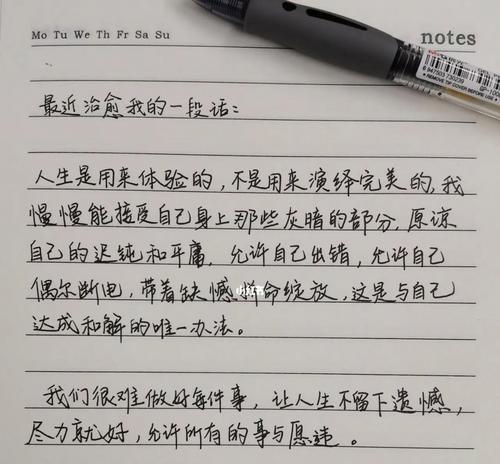 Mo Tu We Th Fr Sa Su
notes
REMOVE TIP COVER BEFORE
6 947503 730239
最近治愈我的一段话：
人生是用来体验的，不是用来演绎完美的，我
慢慢能接受自己身上那些灰暗的部分，原谅
自己的迟钝和平庸，允许自己出错，允许自己
偶尔断电，带着缺憾拼命绽放，这是与自己
达成和解的唯一办法。
我们很难做好每件事，让人生不留下遗憾，
尽力就好，允许所有的事与愿违。